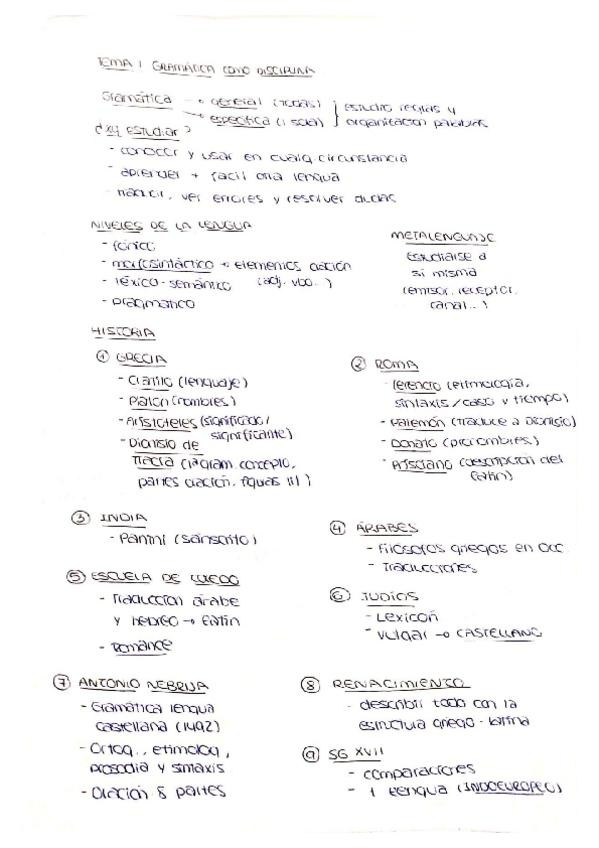 TEMA 1 GRAMÁTICA COMO DISCIPLINA
Gramática → general (todas) } estudio reglas y
→ específica (1 sola) } organización palabras
¿xq estudiar?
- conocer y usar en cualq. circunstancia
- aprender + facil otra lengua
- traducir, ver errores y resolver dudas
NIVELES DE LA LENGUA
- fónico
- morfosintáctico → elementos oración
(adj. vbo...)
- léxico-semántico
- pragmatico
METALENGUAJE
Estudiarse a
si misma
(emisor, receptor,
canal...)
HISTORIA
① GRECIA
- Cratilo (lenguaje)
- Platón (nombres)
- Aristóteles (significado/
significante)
- Dionisio de
Tracia (1ª gram. concepto,
partes oración, figuras lit)
② ROMA
- Terencio (etimología,
sintaxis / caso y tiempo)
- Palemón (traduce a Dionisio)
- Donato (pronombres)
- Prisciano (descripción del
latín)
③ INDIA
- Panini (sánscrito)
④ ÁRABES
- Filósofos griegos en occ
- Traducciones
⑤ ESCUELA DE TOLEDO
- Traducción árabe
y hebreo → latín
- Romance
⑥ JUDÍOS
- Lexicón
- Vulgar → CASTELLANO
⑦ ANTONIO NEBRIJA
- Gramática lengua
castellana (1492)
- Ortog., etimolog,
prosodia y sintaxis
- Oración 8 partes
⑧ RENACIMIENTO
- describir todo con la
estructura griego-latina
⑨ SG XVII
- comparaciones
- 1 lengua (INDOEUROPEO)